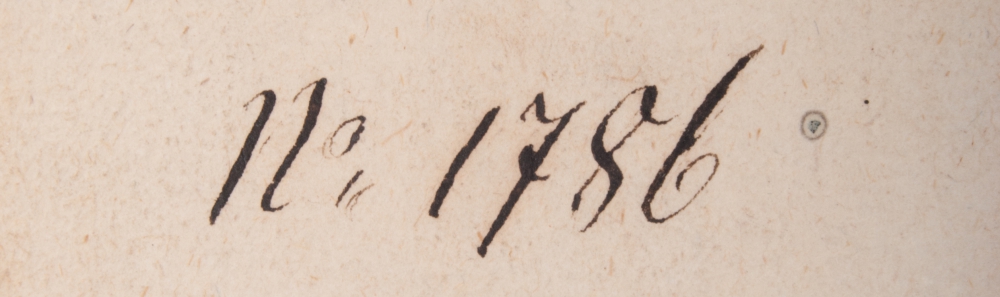 No. 1786